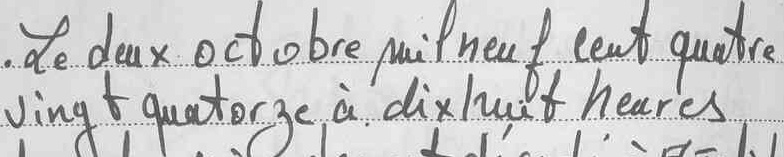 .Le deux octobre mil neuf cent quatre
vingt quatorze à dixhuit heures